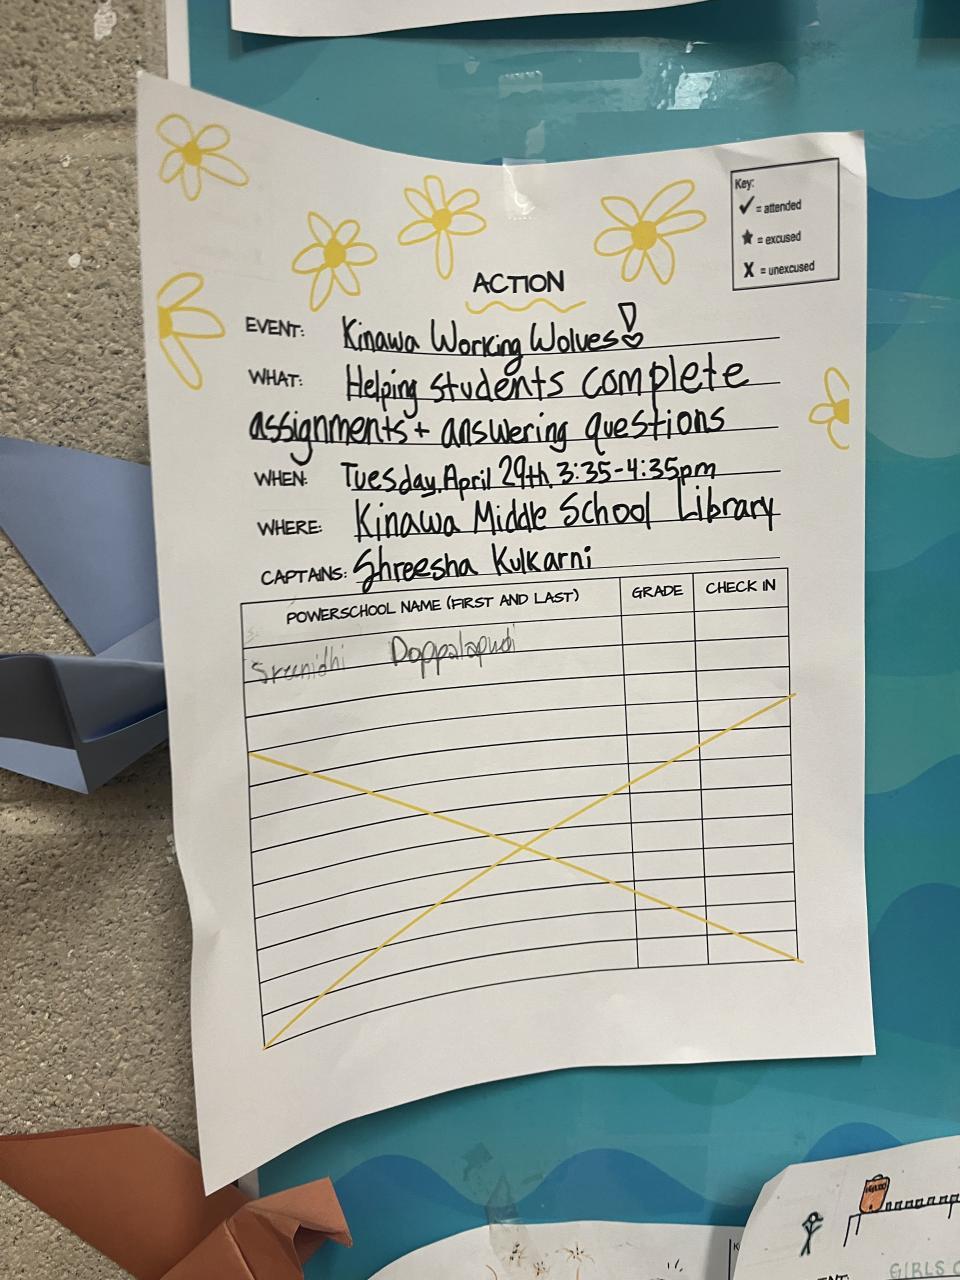 Key:
✓ = attended
★ = excused
X = unexcused
ACTION
EVENT: Kinawa Working Wolves!
WHAT: Helping students complete
assignments + answering questions
WHEN: Tuesday, April 29th, 3:35-4:35pm
WHERE: Kinawa Middle School Library
CAPTAINS: Shreesha Kulkarni
POWERSCHOOL NAME (FIRST AND LAST) GRADE CHECK IN
Sreenidhi Doppalapudi
GIRLS